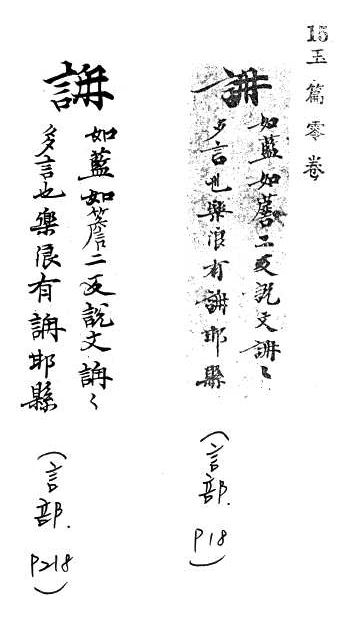 15
玉篇零卷
詽
如藍如詹二反說文詽〻
多言也樂浪有詽邯縣
(言部.
P18)
詽
如藍如䈴二反說文詽〻
多言也樂浪有詽邯縣
(言部.
P218)